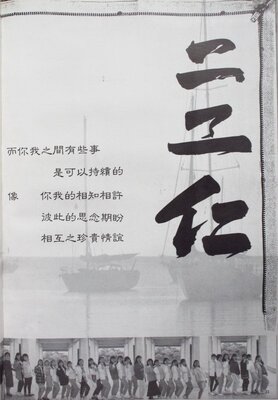 二仁
而你我之間有些事
是可以持續的
像 你我的相知相許
彼此的思念期盼
相互之珍貴情誼